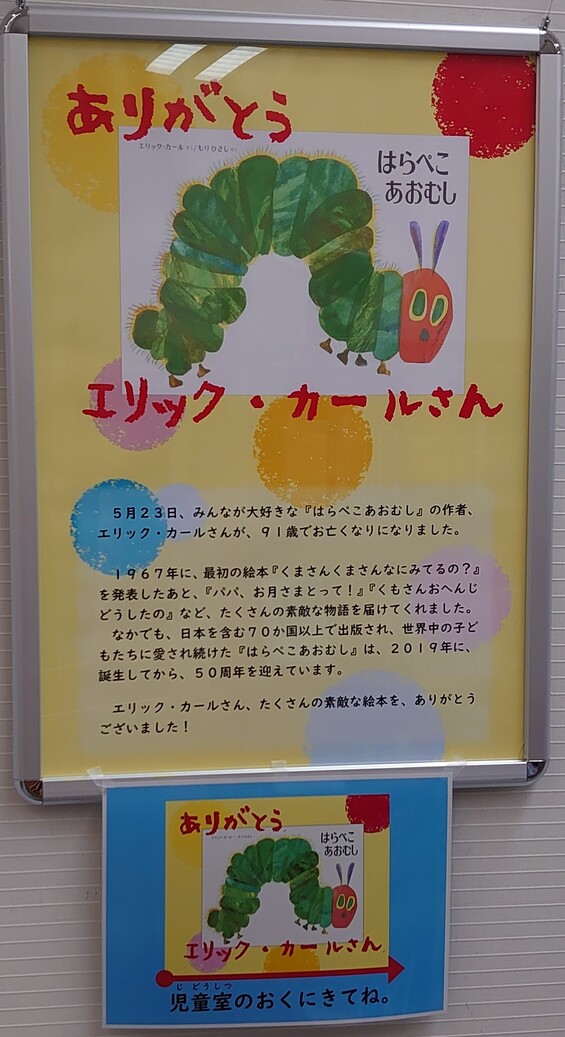 ありがとう
エリック・カール さく/もりひさし やく
はらぺこ
あおむし
エリック・カールさん
５月２３日、みんなが大好きな『はらぺこあおむし』の作者、
エリック・カールさんが、９１歳でお亡くなりになりました。
１９６７年に、最初の絵本『くまさんくまさんなにみてるの？』
を発表したあと、『パパ、お月さまとって！』『くもさんおへんじ
どうしたの』など、たくさんの素敵な物語を届けてくれました。
なかでも、日本を含む７０か国以上で出版され、世界中の子ど
もたちに愛され続けた『はらぺこあおむし』は、２０１９年に、
誕生してから、５０周年を迎えています。
エリック・カールさん、たくさんの素敵な絵本を、ありがとう
ございました！
ありがとう
はらぺこ
あおむし
エリック・カールさん
じどうしつ
児童室のおくにきてね。